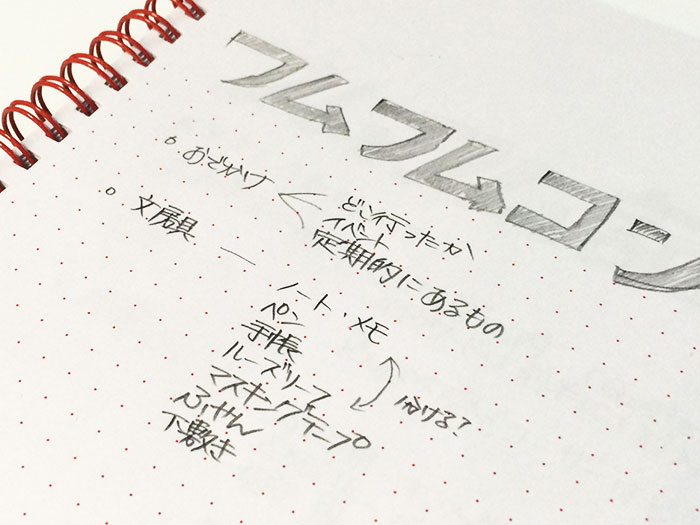 フムフムコン
おでかけ
どこ行ったか
イベント
定期的にあるもの
文房具
ノート・メモ
ペン
手帳
ルーズリーフ
マスキングテープ
ふせん
下敷き
分ける?